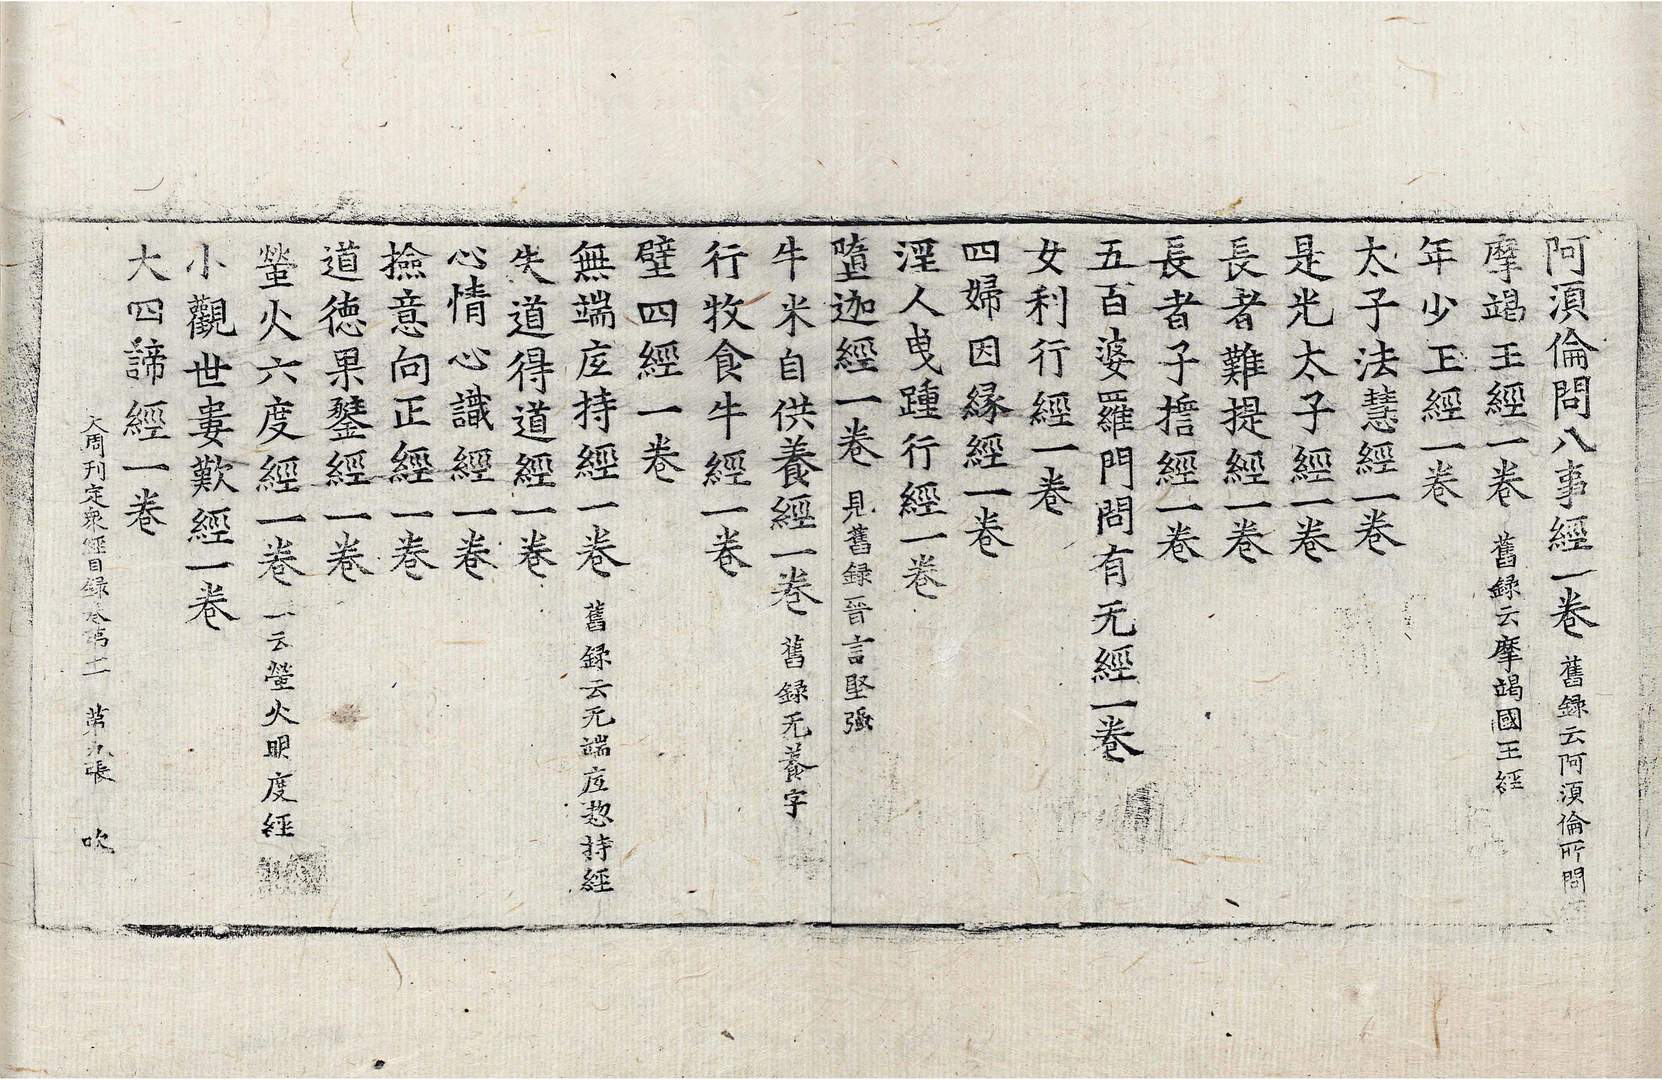 阿湏倫問八事經一卷 舊録云阿湏倫所問
摩竭王經一卷 舊録云摩竭國王經
年少王經一卷
太子法慧經一卷
是光太子經一卷
長者難提經一卷
長者子擔經一卷
五百婆羅門問有无經一卷
女利行經一卷
四婦因緣經一卷
淫人曵踵行經一卷
墮迦經一卷 見舊録晉言堅强
牛米自供養經一卷 舊録无養字
行牧食牛經一卷
壁四經一卷
無端底持經一卷 舊録云无端底惣持經
失道得道經一卷
心情心識經一卷
撿意向正經一卷
道徳果證經一卷
螢火六度經一卷 一云螢火明度經
小觀世婁歎經一卷
大四諦經一卷
大周刊定衆經目録卷第十二 第九張 吹